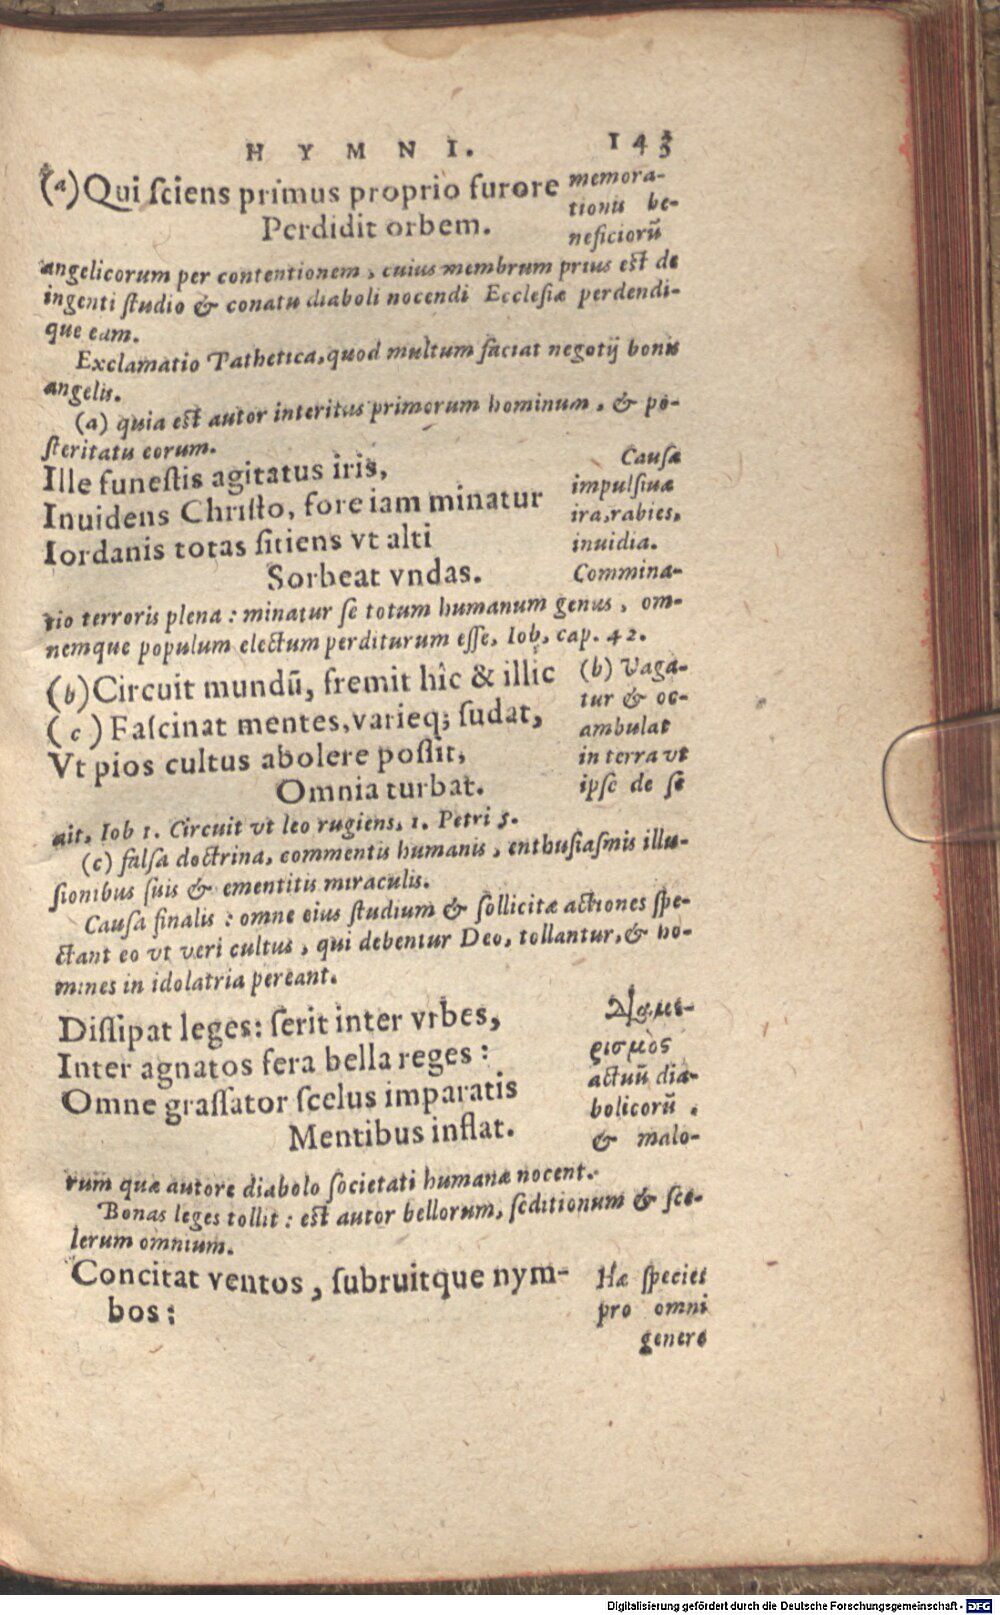 HYMNI. 143
(a) Qui ſciens primus proprio furore
Perdidit orbem.
memora-
tionis be-
neficiorũ
angelicorum per contentionem, cuius membrum prius est de
ingenti ſtudio & conatu diaboli nocendi Eccleſiæ perdendi-
que eam.
Exclamatio Pathetica, quod multum faciat negotij bonis
angelis.
(a) quia est autor interitus primorum hominum, & po-
ſteritatis eorum.
Ille funeſtis agitatus iris,
Inuidens Chriſto, fore iam minatur
Iordanis totas ſitiens vt alti
Sorbeat vndas.
Cauſæ
impulſiuæ
ira, rabies,
inuidia.
Commina-
tio terroris plena: minatur ſe totum humanum genus, om-
nemque populum electum perditurum eſſe, Iob, cap. 42.
(b) Circuit mundũ, fremit hîc & illic
(c) Faſcinat mentes, varieq; ſudat,
Vt pios cultus abolere poſſit,
Omnia turbat.
(b) Vaga-
tur & oc-
ambulat
in terra vt
ipſe de ſe
ait, Iob 1. Circuit vt leo rugiens, 1. Petri 5.
(c) falſa doctrina, commentis humanis, enthuſiaſmis illu-
ſionibus ſuis & ementitis miraculis.
Cauſa finalis: omne eius ſtudium & ſollicitæ actiones ſpe-
ctant eo vt veri cultus, qui debentur Deo, tollantur, & ho-
mines in idolatria pereant.
Diſſipat leges: ſerit inter vrbes,
Inter agnatos fera bella reges:
Omne graſſator ſcelus imparatis
Mentibus inflat.
Διαμε-
ρισμὸς
actuũ dia-
bolicorũ.
& malo-
rum quæ autore diabolo ſocietati humanæ nocent.
Bonas leges tollit: est autor bellorum, ſeditionum & ſce-
lerum omnium.
Concitat ventos, ſubruitque nym-
bos:
Hæ ſpecies
pro omni
genere
Digitalisierung gefördert durch die Deutsche Forschungsgemeinschaft - DFG